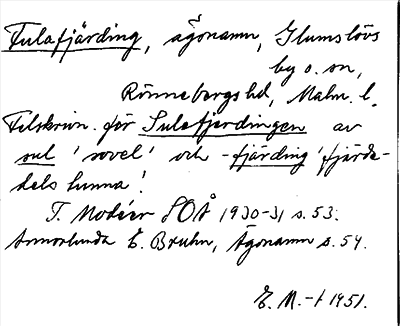 Tulafjärding, ägonamn, Glumslövs
by o. sn,
Rönnebergs hd, Malm. l.
Felskrivn. för Sulefjerdingen av
sul 'sovel' och -fjärding 'fjärde-
dels tunna'.
I. Modéer SOÅ 1930-31 s. 53.
Annorlunda E. Bruhn, Ägonamn s. 54.
E. M.-t 1951.